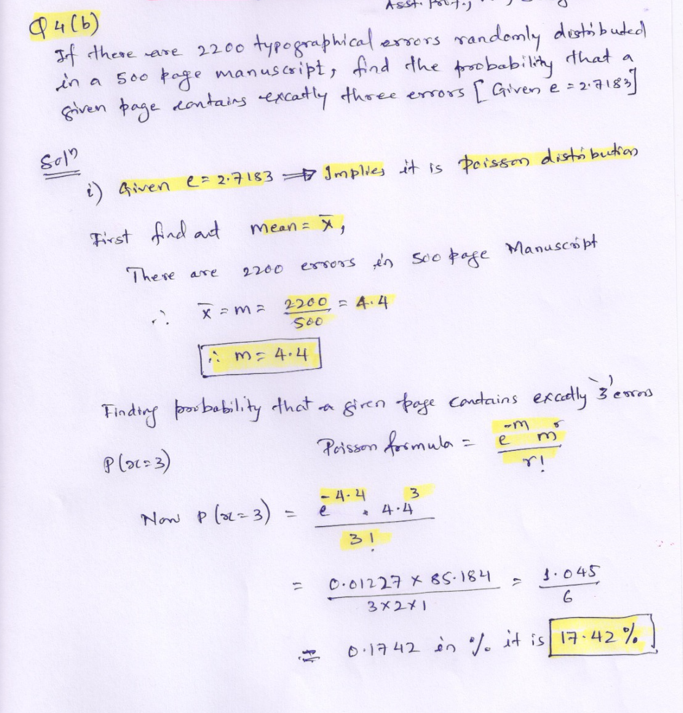 Asst. Prof.,
Q 4(b)
If there are 2200 typographical errors randomly distributed
in a 500 page manuscript, find the probability that a
given page contains excatly three errors [Given e = 2.7183]
Solⁿ
i) Given e = 2.7183 ⇒ Implies it is Poisson distribution
First find out mean = x̄,
There are 2200 errors in 500 page Manuscript
∴ x̄ = m = 2200/500 = 4.4
∴ m = 4.4
Finding probability that a given page contains excatly '3' errors
P(x=3) Poisson formula = e^-m m^r / r!
Now P(x=3) = e^-4.4 . 4.4^3 / 3!
= 0.01227 × 85.184 / 3×2×1 = 1.045 / 6
= 0.1742 in % it is 17.42 %